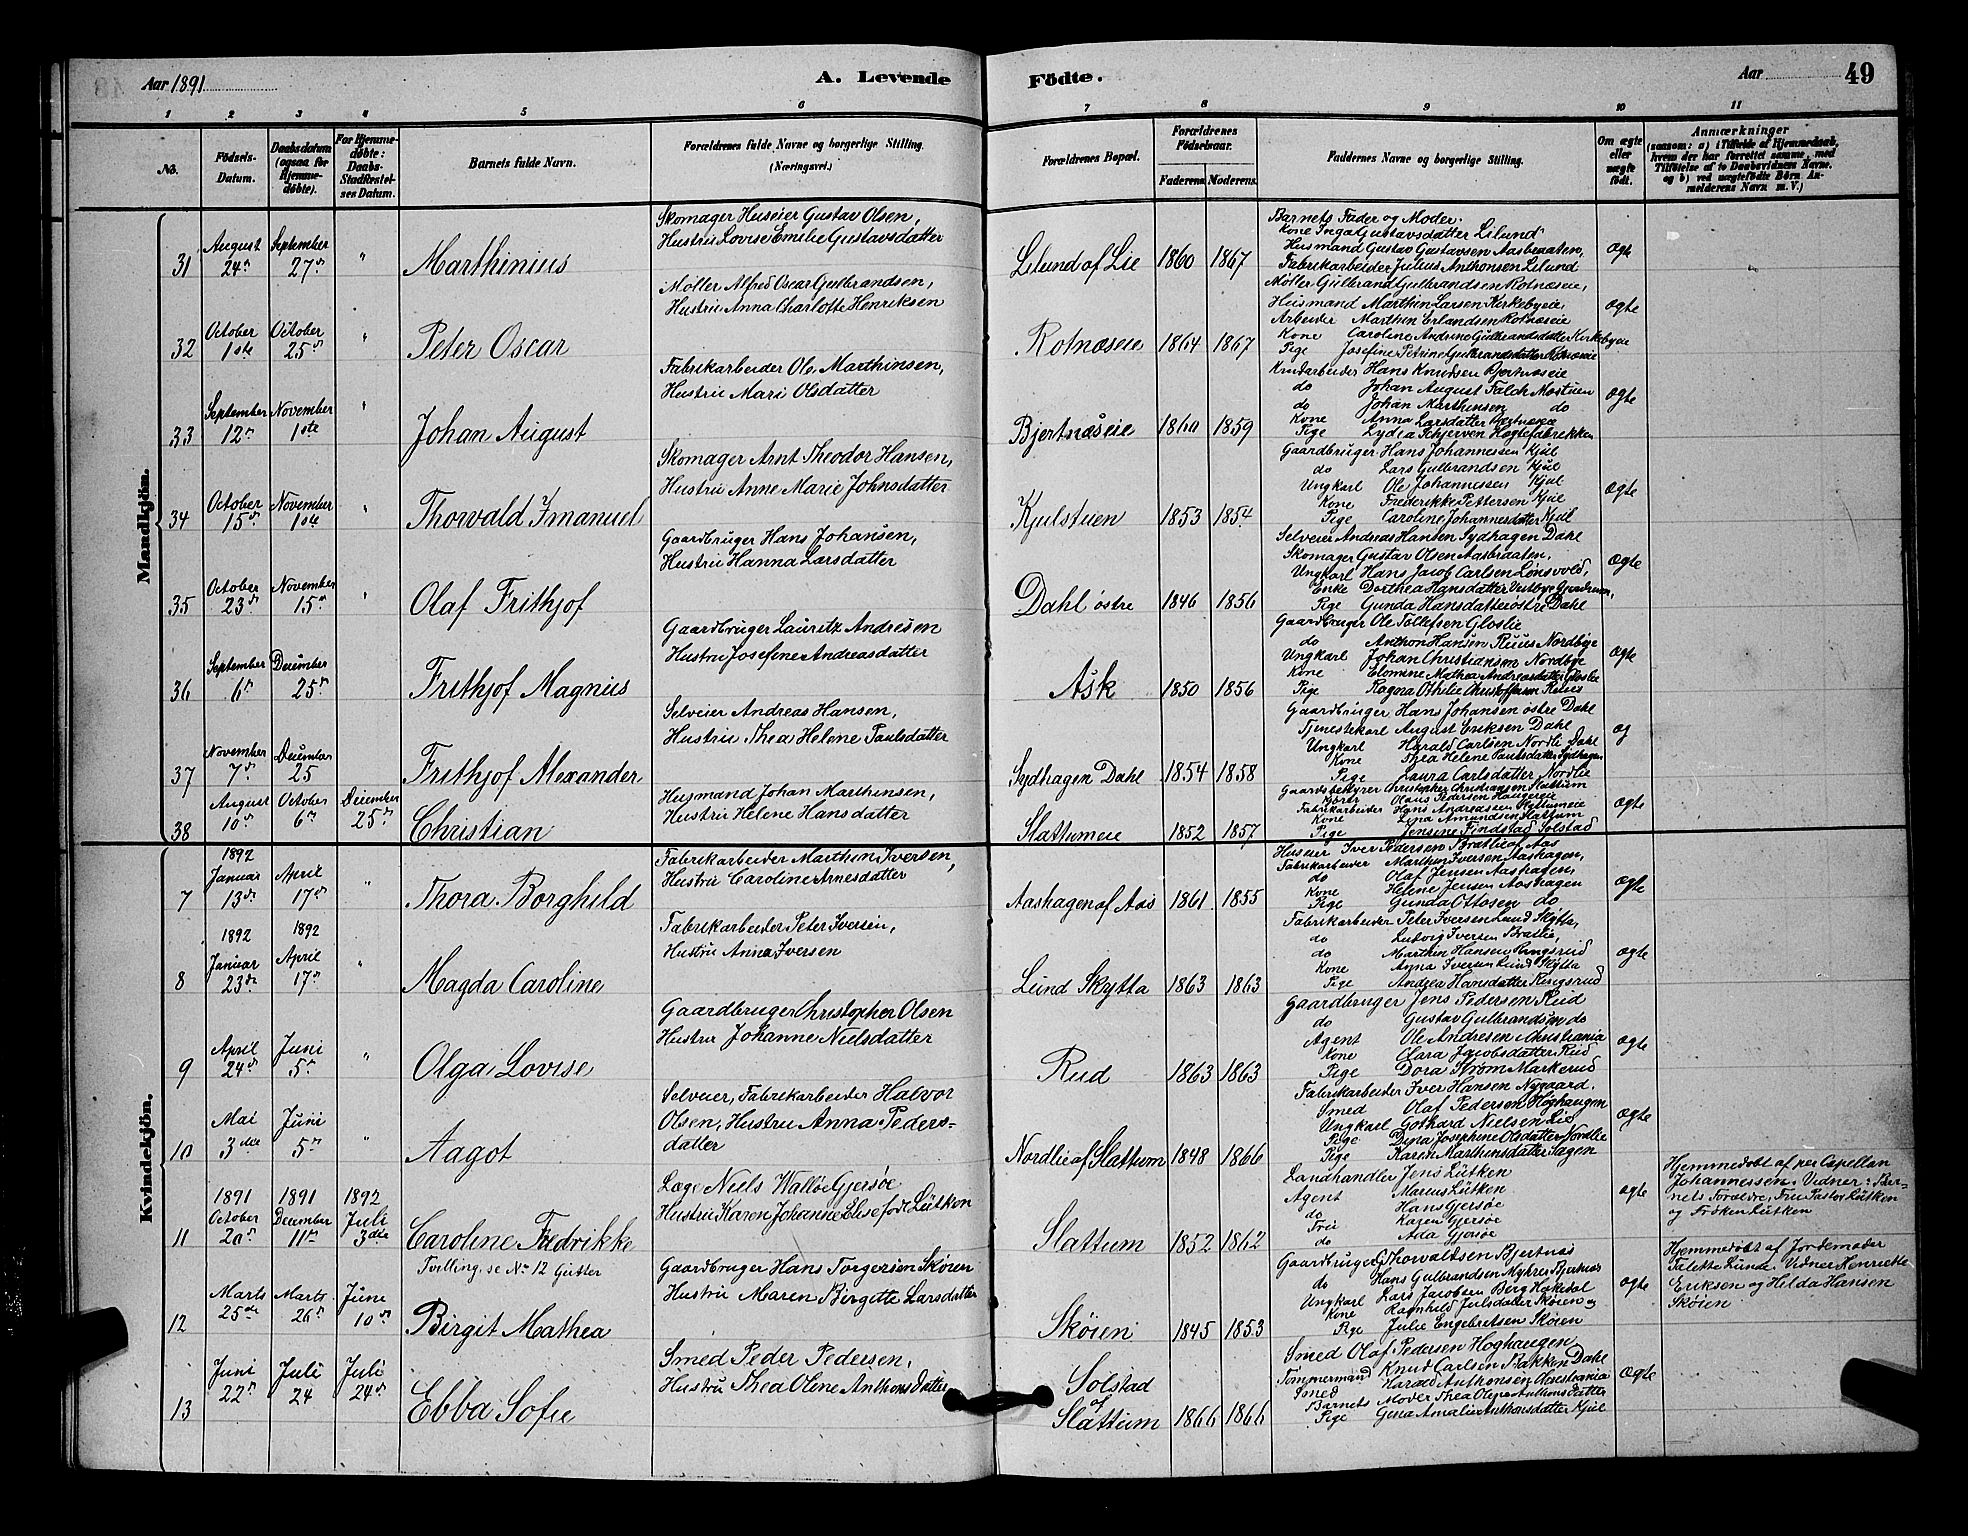 Aar 1891
A. Levende
Födte.
Aar
49
1 2 3 4 5 6 7 8 9 10 11
No.
Födsels-
Datum.
Daabsdatum
(ogsaa for
Hjemme-
döbte).
For Hjemme-
døbte:
Daabs-
Stadfæstel-
ses Datum.
Barnets fulde Navn.
Forældrenes fulde Navne og borgerlige Stilling.
(Næringsvei.)
Forældrenes Bopæl.
Forældrenes
Födselsaar.
Faderens. Moderens.
Faddernes Navne og borgerlige Stilling.
Om ægte
eller
uægte
født.
Anmærkninger
(saasom: a) i Tilfælde af Hjemmedaab,
hvem der har forrettet samme, med
Tilføielse af to Daabsvidners Navne,
og b) ved uægtefödte Börn An-
melderens Navn m. V.)
Mandkjön.
31
August
24de
September
27de
"
Marthinius
Skomager Huseier Gustav Olsen,
Hustru Lovise Emilie Gustavsdatter
Lilund af Lie
1860 1867
Barnets Fader og Moder.
Kone Inga Gustavsdatter Lilund
Husmand Gustav Gustavsen Aasbraaten,
Fabrikarbeider Julius Anthonsen Lilund
Ægte
32
October
1ste
October
25de
"
Peter Oscar
Møller Alfred Oscar Gulbrandsen,
Hustru Anna Charlotte Henriksen
Rotnæseie
1864 1867
Møller Gulbrand Gulbrandsen Rotnæseie,
Husmand Marthin Larsen Kirkebyeie,
Arbeider Marthin Erlandsen Rotnæseie
Kone Caroline Andrine Gulbrandsdatter Kirkebyeie
Pige Josefine Petrine Gulbrandsdatter Rotnæseie
Ægte
33
September
12te
November
1ste
"
Johan August
Fabrikarbeider Ole Marthinsen,
Hustru Mari Olsdatter
Bjertnæseie
1860 1859
Krudarbeider Hans Knudsen Bjertnæseie
do Johan August Falch Mostuen
do Johan Marthinsen do
Kone Anna Larsdatter Bjertnæseie
Pige Lydea Schjerven Hogtefabrekken
Ægte
34
October
15de
November
1ste
"
Thorvald Imanuel
Skomager Arnt Theodor Hansen,
Hustru Anne Marie Johnsdatter
Kjulstuen
1853 1854
Gaardbruger Hans Johannessen Kjul
do Lars Gulbrandsen Kjul
Ungkarl Ole Johannessen Kjul
Kone Frederikke Pettersen Kjul
Pige Caroline Johannesdatter Kjul
Ægte
35
October
23de
November
15de
"
Olaf Frithjof
Gaardbruger Hans Johansen,
Hustru Hanna Larsdatter
Dahl østre
1846 1856
Selveier Andreas Hansen Sydhagen Dahl
Skomager Gustav Olsen Aasbraaten,
Ungkarl Hans Jacob Carlsen Lønsvold,
Enke Dorthea Hansdatter
Pige Gunda Hansdatter østre Dahl
Ægte
36
September
6te
December
25de
Frithjof Magnus
Gaardbruger Lauritz Andresen
Hustru Josefine Andreasdatter
Ask
1850 1856
Gaardbruger Ole Tollefsen Gloslie
do Anthon Hansen Ruus Nordbye
Ungkarl Johan Christiansen Nordbye
Kone Elomine Mathea Andreasdatter Gloslie
Pige Ragna Othilie Christoffersen Ruus
Ægte
37
November
7de
December
25
Frithjof Alexander
Selveier Andreas Hansen,
Hustru Thea Helene Paulsdatter
Sydhagen Dahl
1854 1858
Gaardbruger Hans Johansen østre Dahl
Tjenestekarl August Eriksen Dahl
Ungkarl Harald Carlsen Nordli Dahl
Kone Thea Helene Paulsdatter Sydhagen
Pige Laura Carlsdatter Nordlie
Æg
38
August
10de
October
6te
December
25de
Christian
Husmand Johan Marthinsen,
Hustru Helene Hansdatter
Slattumeie
1852 1857
Gaardsbestyrer Christopher Christiansen Slattum
Olaus Pedersen Haugereie
Fabrikarbeider Hans Andreassen Slattumeie
Kone Lina Amundsen Slattum
Pige Jensine Findstad Solstad
Ægte
Kvindekjön.
7
1892
Januar
13de
April
17de
"
Thora Borghild
Fabrikarbeider Marthin Iversen,
Hustru Caroline Arnesdatter
Aashagen af Aas
1861 1855
Huseier Iver Pedersen Bratlie af Aas
Fabrikarbeider Marthin Iversen Aashagen,
do Olaf Jensen Aashagen,
Kone Helene Jensen Aashagen
Pige Gunda Ottosen do
Ægte
8
1892
Januar
23de
1892
April
17de
"
Magda Caroline
Fabrikarbeider Peter Iversen,
Hustru Anna Iversen
Lund Skytta
1863 1863
Fabrikarbeider Peter Iversen Lund Skytta,
do Ludvig Iversen Bratlie,
do Marthin Hansen Ringsrud
Kone Anna Iversen Lund Skytta
Pige Andrea Hansdatter Ringsrud
Ægte
9
April
24de
Juni
5te
"
Olga Lovise
Gaardbruger Christopher Olsen
Hustru Johanne Nielsdatter
Rud
1863 1863
Gaardbruger Jens Pedersen Rud
do Gustav Gulbrandsen do
Agent Ole Andresen Christiania
Kone Clara Jacobsdatter Rud
Pige Dora Strøm Markerud
Ægte
10
Mai
3die
Juni
5te
"
Aagot
Selveier, Fabrikarbeider Halvor
Olsen, Hustru Anna Peders-
datter
Nordlie af Slattum
1848 1866
Fabrikarbeider Iver Hansen Nygaard,
Smed Olaf Pedersen Høghaugen
Ungkarl Gothard Nielsen Lie
Pige Dina Josephine Olsdatter Nordlie
Pige Karen Marthinsdatter Hagen
Ægte
11
1891
October
20de
1891
December
11te
1892
Juli
3die
Caroline Fredrikke
Læge Niels Walløe Gjersøe
Hustru Karen Johanne Elise født Lütken
Slattum
1852 1862
Landhandler Jens Lütken
Agent Marius Lütken
do Hans Gjersøe
Frue Karen Gjersøe
do Ada Gjersøe
Ægte
Hjemmedøbt af per Capellan
Johannessen. Vidner: Bar-
nets Forældre, Fru Pastor Lütken
og Frøken Lütken
12
Marts
25de
Marts
26de
June
10de
Tvilling, se No 12 Gutter
Birgit Mathea
Gaardbruger Hans Torgersen Skøien
Hustru Maren Birgitte Larsdatter
Skøien
1845 1853
Gaardbruger Thorvaldsen Bjertnæs
do Hans Gulbrandsen Myhrer Bjertnæs
Ungkarl Lars Jacobsen Berg Hakedal
Kone Ragnhild Julsdatter Skøien
Pige Julie Engebretsen Skøien
Ægte
Hjemmedøbt af Jordemoder
Talette Lunde. Vidner Henriette
Eriksen og Helda Hansen
Skøien
13
Juni
22de
Juli
24
Juli
24de
Ebba Sofie
Smed Peder Pedersen,
Hustru Thea Oline Anthonsdatter
Solstad
af
Slattum
1866 1866
Smed Olaf Pedersen Høghaugen
Tømmermand Knud Carlsen Bakken Dahl
Smed Harald Anthonsen Christiania
Barnets Moder Thea Oline Anthonsdatter
Pige Gina Amalie Anthonsdatter Kjul
Ægte